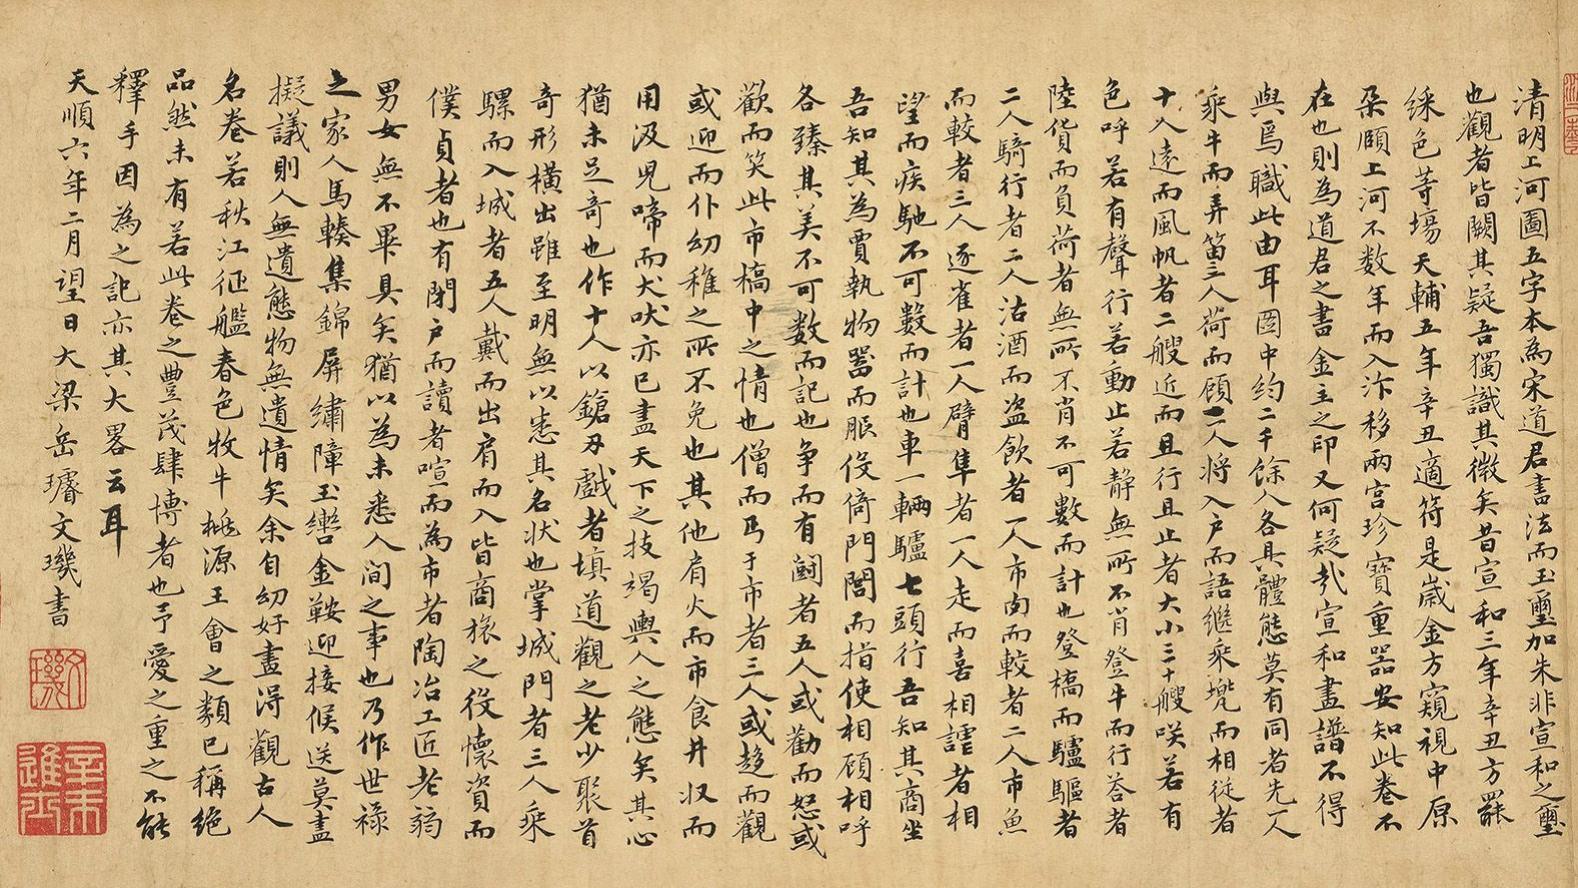 清明上河圖五字本為宋道君書法而玉璽加朱非宣和之璽
也觀者皆闕其疑吾獨識其微矣昔宣和三年辛丑方罷
綵色等場天輔五年辛丑適符是歲金方窺視中原
朶頤上河不数年而入汴移兩宮珍寶重器安知此卷不
在也則為道君之書金主之印又何疑哉宣和畫譜不得
與焉職此由耳圖中约二千餘人各具體態莫有同者先一人
乘牛而弄笛三人荷而顧二人將入户而語繼乘而相從者
十人遠而風帆者二艘近而且行且止者大小三十艘咲若有
色呼若有聲行若若動止若静無所不肖登牛而行荅者
陸貨而負荷者無所不肖不可數而計也登橋而驢驅者
二人騎行者二人沽酒而盗飲者一人市肉而較者二人市魚
而較者三人逐雀者一人臂隼者一人走而喜相謔者相
望而疾馳不可數而計也車一輛驢七頭行吾知其商坐
吾知其為賈執物器而服役倚門閭而指使相顧相呼
各臻其美不可數而記也争而有鬪者五人或勸而怒或
歡而笑此市橋中之情也僧而丐于市者三人或趍而觀
或迎而仆幼稚之所不免也其他肩火而市食井収而
用汲児啼而犬吠亦已盡天下之技竭輿人之態矣其心
猶未足竒也作十人以鎗刃戲者填道觀之老少聚首
奇形橫出雖至明無以悉其名状也掌城門者三人乘
騾而入城者五人戴而出肩而入皆商旅之役懷資而
僕貞者也有閉户而讀者喧而為市者陶冶工匠老弱
男女無不畢具矣猶以為未悉人间之事也乃作世禄
之家人馬輳集錦屏繡障玉轡金鞍迎接候送莫盡
擬議則人無遺態物無遺情矣余自幼好畫淂觀古人
名卷若秋江征艦春色牧牛桃源王會之類已稱绝
品然未有若此卷之豊茂肆博者也予愛之重之不能
釋手因為之記亦其大畧云耳
天順六年二月望日大梁岳璿文璣書
文璣
辛未進士